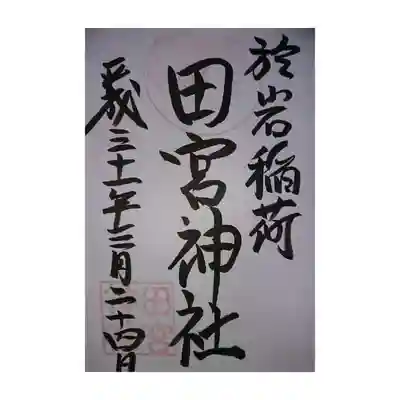 於岩稲荷
田宮神社
平成三十一年三月二十四日